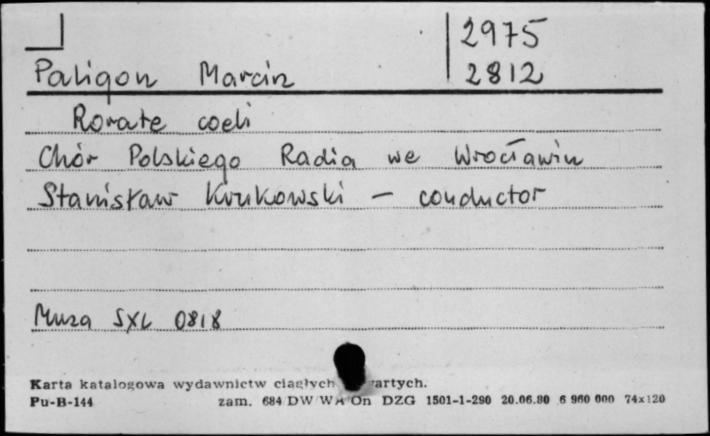 2975
Paligon Marcin 2812
Rorate coeli
Chór Polskiego Radia we Wrocławiu
Stanisław Krukowski – conductor
Muza SXL 0818
Karta katalogowa wydawnictw ciągłych
Pu-B-144 zam. 684 DW On DZG 1501-1-290 20.06.80 6 960 000 74x120